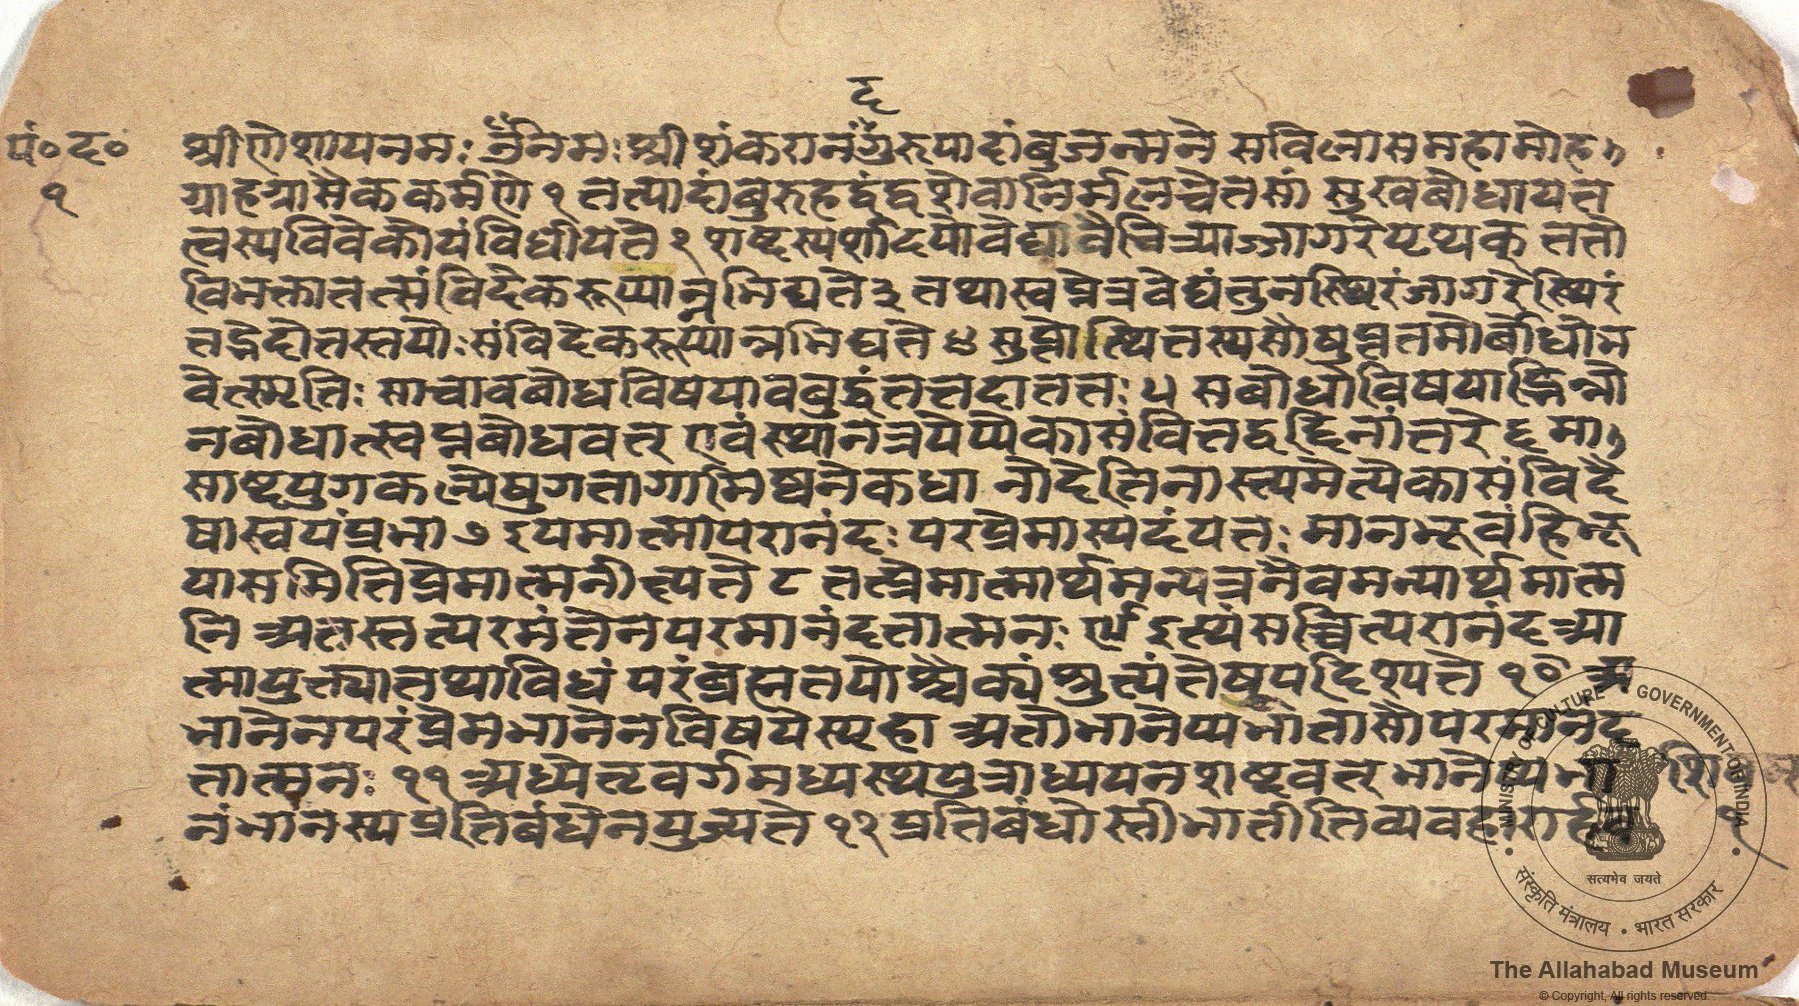 द
पं॰द॰
१
श्रीगणेशायनमः नमः श्रीशंकरानंदगुरुपादांबुजन्मने सविलासमहामोह
ग्राहग्रासैककर्मणे १ तत्पादांबुरुहद्वंद्वशेवानिर्मलचेतसां सुखबोधायत
त्वस्यविवेकोयंविधीयते २ शब्दस्पर्शादयोवेद्यावैचित्र्याज्जागरेपृथक् ततो
विभक्तातत्संविदेकरूप्यान्नभिद्यते ३ तथास्वप्नेत्रवेद्यंतुनस्थिरंजागरेस्थिरं
तद्भेदोतस्तयोःसंविदेकरूप्यान्नभिद्यते ४ सुप्तोत्थितस्यसौषुप्ततमोबोधोभ
वेत्स्मृतिः साचावबोधविषयावबुद्धंतत्तदाततः ५ सबोधोविषयाद्भिन्नो
नबोधात्स्वप्नबोधवत् एवंस्थानत्रयेप्येकासंवित्तद्वद्दिनांतरे ६ मा
साब्दयुगकल्पेषुगतागामिष्वनेकधा नोदेतिनास्तमेत्येकासंविदे
षास्वयंप्रभा ७ इयमात्मापरानंदः परप्रेमास्पदंयतः मानभूवंहिभू
यासमितिप्रेमात्मनीक्ष्यते ८ तत्प्रेमात्मार्थमन्यत्रनैवमन्यार्थमात्म
नि अतस्तत्परमंतेनपरमानंदतात्मनः ९ इत्थंसच्चित्परानंदआ
त्मायुक्त्यातथाविधं परंब्रह्मतयोश्चैक्यंश्रुत्यंतेषूपदिश्यते १० अ
भानेनपरंप्रेमभानेनविषयेस्पृहा अतोभानेप्यभातासौपरमानंद
तात्मनः ११ अध्येतृवर्गमध्यस्थपुत्राध्ययनशब्दवत् भानेप्यभा
नंभानस्यप्रतिबंधेनयुज्यते १२ प्रतिबंधोस्तीभातीतिव्यवहारार्ह
MINISTRY OF CULTURE GOVERNMENT OF INDIA
सत्यमेव जयते
संस्कृति मंत्रालय • भारत सरकार
The Allahabad Museum
© Copyright, All rights reserved.